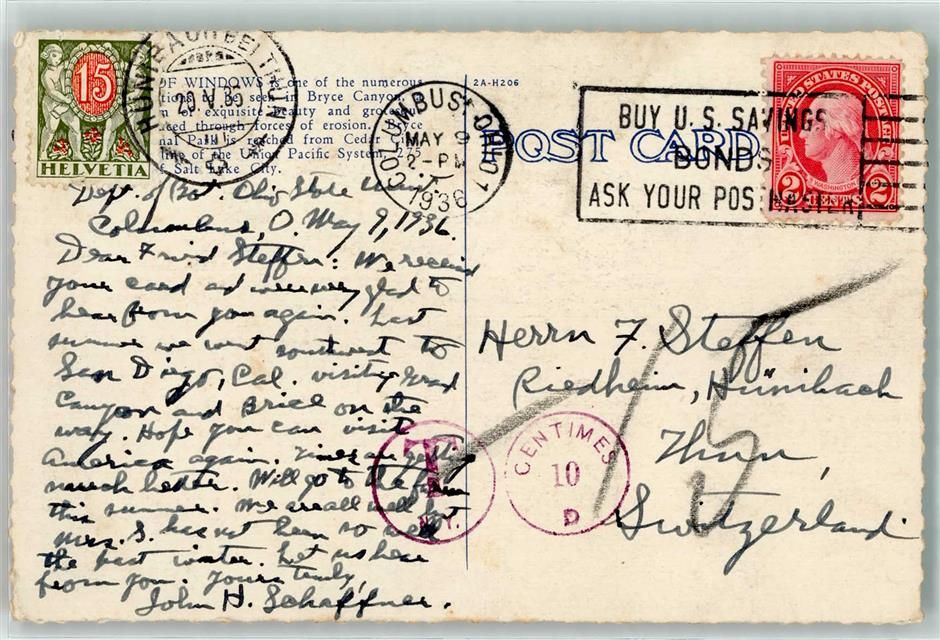 15
HELVETIA
HÜNIBACH BEI THUN
20.V.36
OF WINDOWS is one of the numerous
to be seen in Bryce Canyon
of exquisite beauty and
through forces of erosion. Bryce
nal Park is reached from Cedar City
of the Union Pacific System, 272
Salt Lake City.
2A-H206
POST CARD
COLUMBUS, OHIO 1
MAY 9
2-PM
1936
BUY U.S. SAVINGS
BONDS
ASK YOUR POSTMASTER
UNITED STATES POSTAGE
WASHINGTON
2 CENTS 2
Dept. of Bot. Ohio State Univ.
Columbus, O. May 9, 1936.
Dear Friend Steffen: We received
your card and were very glad to
hear from you again. Last
summer we went southwest to
San Diego, Cal. visiting Grand
Canyon and Brice on the
way. Hope you can visit
America again. Times are getting
much better. Will go to the farm
this summer. We are all well but
Mrs. S. has not been so well
the past winter. Let us hear
from you. Yours truly,
John H. Schaffner.
Herrn F. Steffen
Riedheim, Hünibach
Thun,
Switzerland
T
N.Y.
CENTIMES
10
D
15